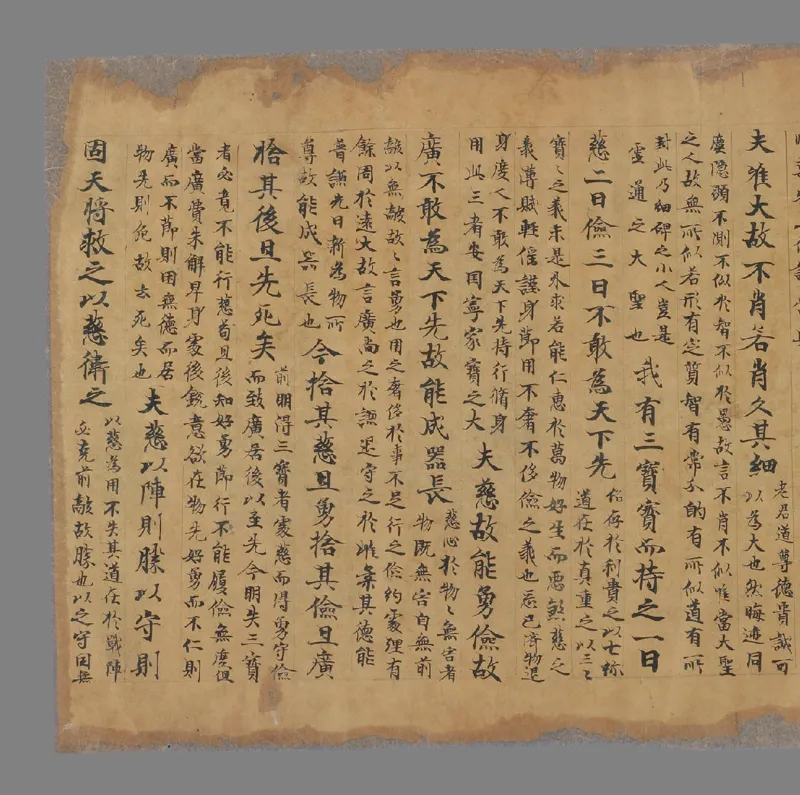 夫唯大故不肖若肖久其細老君道尊德貴誠可
以為大也然晦迹同
塵隱顯不測不似於智不似於愚故言不肖不似唯當大聖
之人故無所似若形有定質智有常分的有所似道有所
封此乃細碑之小人豈是
靈通之大聖也我有三寶寶而持之一日
慈二日儉三日不敢為天下先俗存於利貴之以七珎
道在於真重之以三〻
寶〻之義未是外求若能仁惠於萬物好生而惡煞慈之
義薄賦輕傜謹身節用不奢不侈儉之義也忘己濟物退
身度人不敢為天下先持行脩身
用此三者安国寧家寶之大夫慈故能勇儉故
廣不敢為天下先故能成器長慈心於物〻無害者
物既無害自無前
敵以無敵故〻言勇也用之奢侈於事不足行之儉約處狸有
餘周於遠大故言廣尚之於謙退守之於雌柔其德能
普謙光日新為物所
尊故能成器長也今捨其慈且勇捨其儉且廣
捨其後且先死矣前明得三寶者處慈而得勇守儉
而致廣居後以至先今明失三寶
者必竟不能行慈苟且後知好勇節行不能履儉無度但
當廣費未解卑身處後銳意欲在物先好勇而不仁則
廣而不節則用無德而居
物先則危故去死矣也夫慈以陣則勝以守則
固天將救之以慈衛之以慈為用不失其道在於戰陣
必克前敵故勝也以之守固無